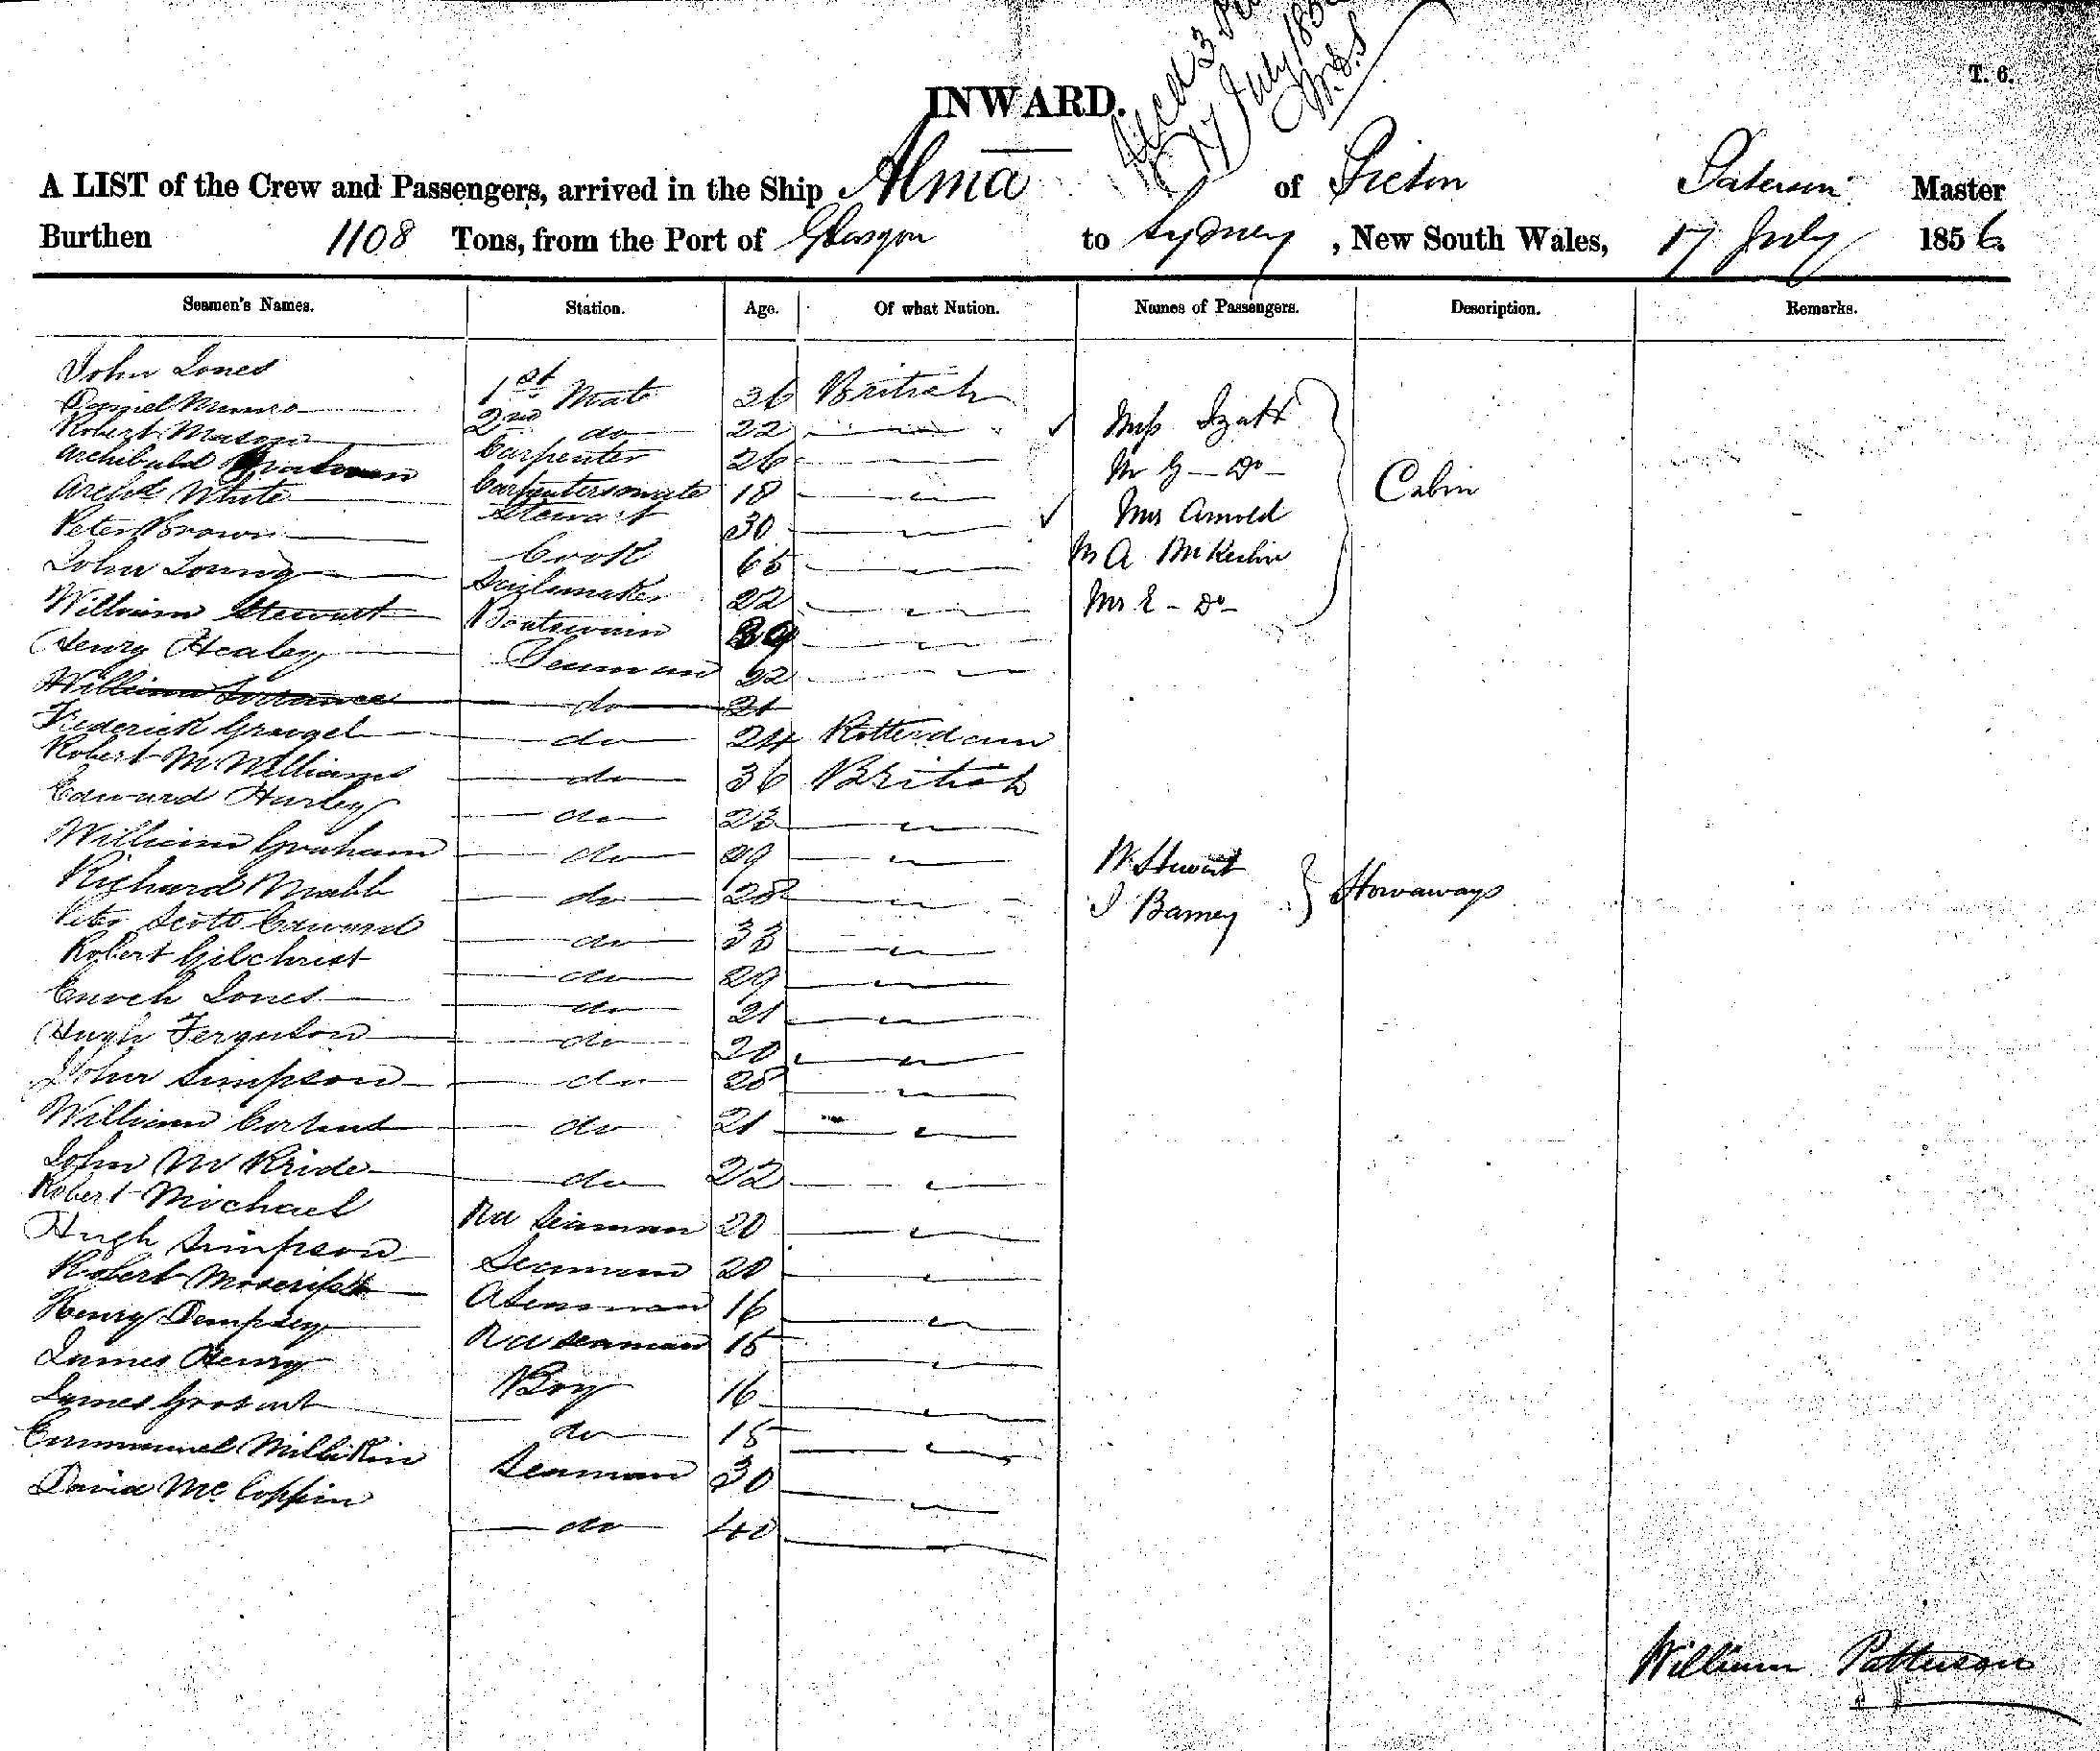 T. 6.
17 July 185
INWARD.
A LIST of the Crew and Passengers, arrived in the Ship Alma of Picton Paterson Master
Burthen 1108 Tons, from the Port of Glasgow to Sydney, New South Wales, 17 July 1856
Seamen's Names. Station. Age. Of what Nation. Names of Passengers. Description. Remarks.
John Jones 1st Mate 36 British
Daniel Munro 2nd do 22 Miss Izatt
Robert Mason Carpenter 26 Mr G - Do -
Archibald Carpentersmate 18 Cabin
Archd White Stewart 30 Mrs Arnold
Peter Brown Cook 65 Mr A McKechie
John Young Sailmaker 22 Mr E - Do -
William Stewart Boatswain
Henry Healey Seaman
William Torrance do 21
Frederick do 24 Rotterdam
Robert McWilliams do 36 British
Edward Hurley do 23
William Graham do 29 W. Stewart
Richard Mabb do 28 J Barney Stowaways
Peter Scott do 33
Robert Gilchrist do 29
Enoch Jones do 21
Hugh Ferguson do 20
John Simpson do 25
William do 21
John McKride do 22
Robert Michael Seaman 20
Hugh Simpson Seaman 20
Robert 16
Henry Dempsey 15
James Henry Boy 16
James do 15
Emmanuel Millikin Seaman 30
David McCoppin do 40
William Patterson